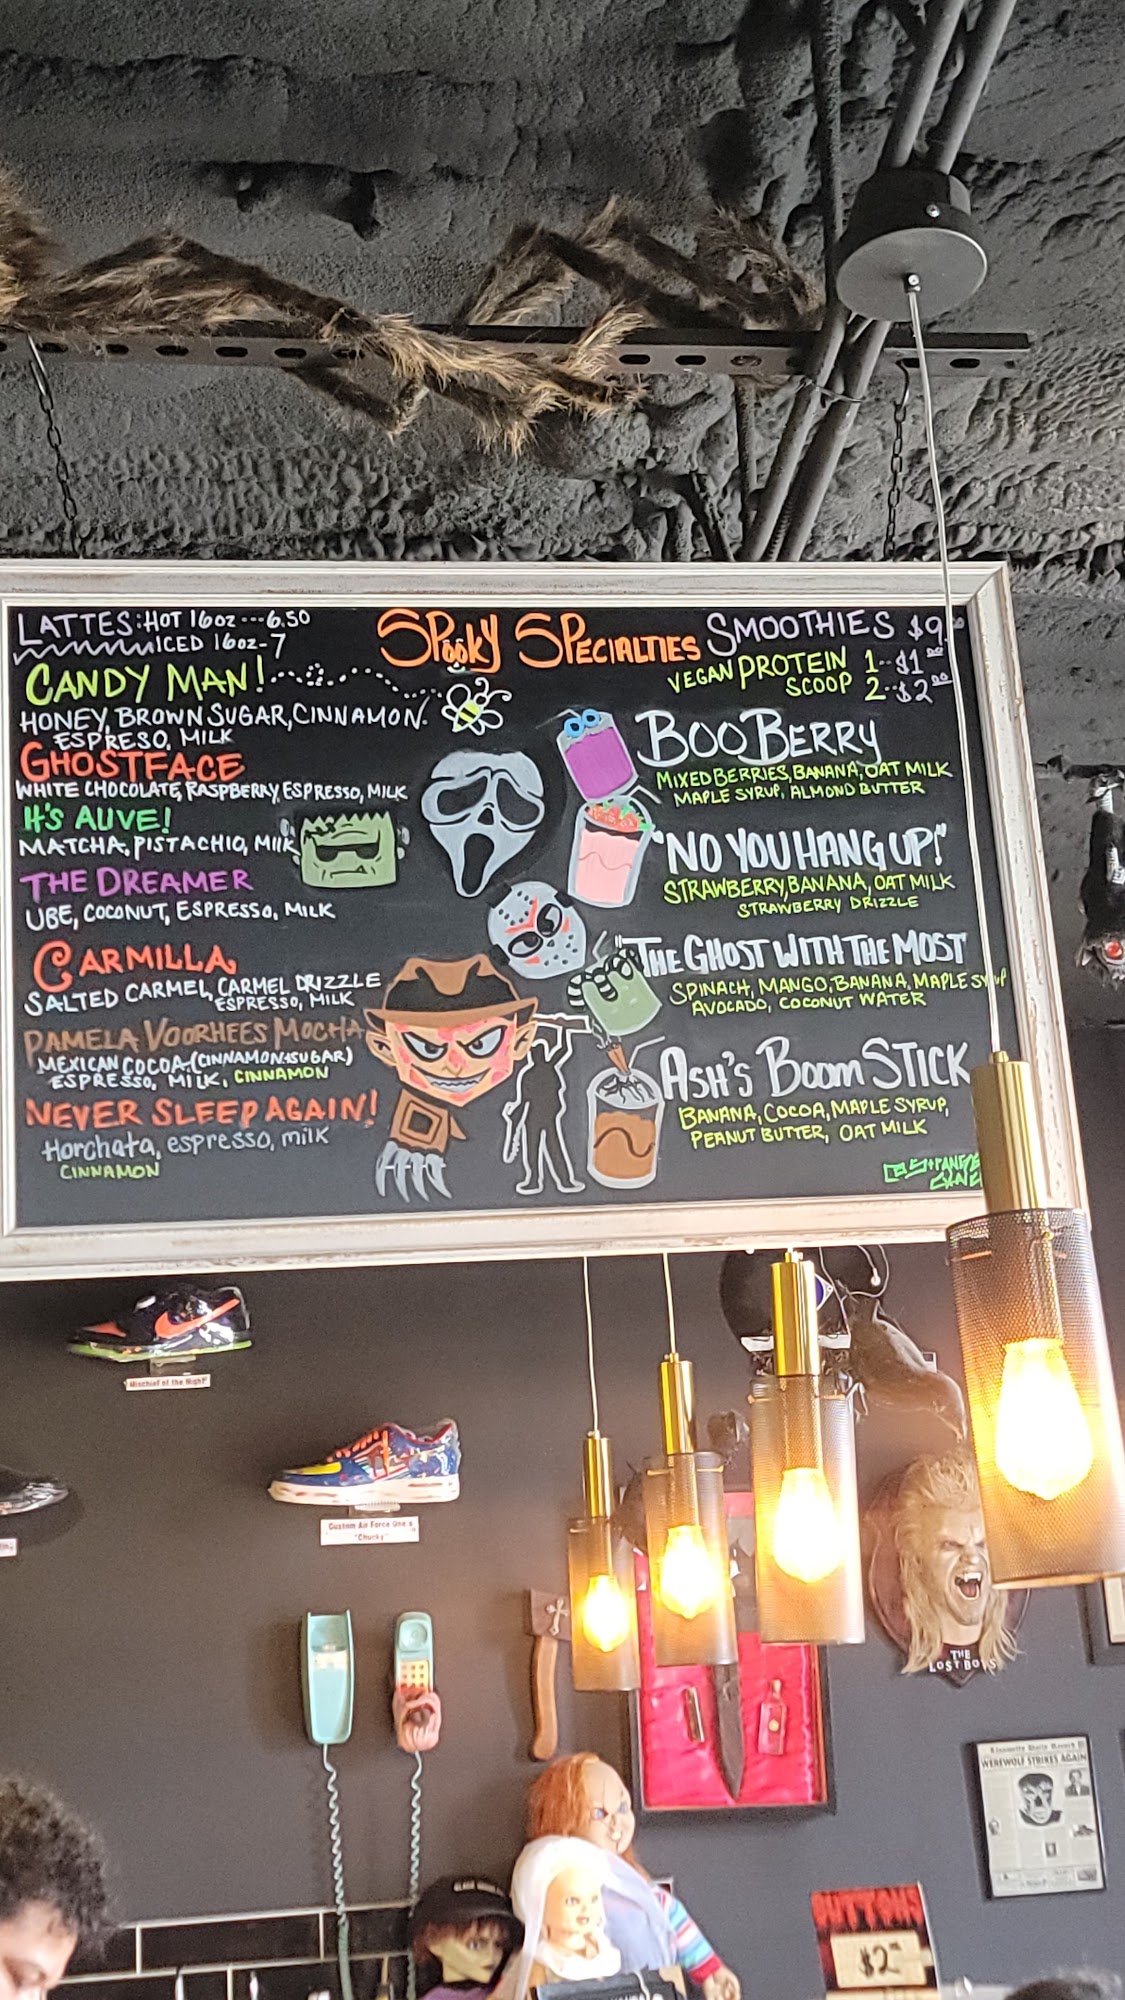 LATTES: HOT 16oz ---6.50
ICED 16oz-7
CANDY MAN!
HONEY, BROWN SUGAR, CINNAMON.
ESPRESO, MILK
GHOSTFACE
WHITE CHOCOLATE, RASPBERRY, ESPRESSO, MILK
It's ALIVE!
MATCHA, PISTACHIO, MILK
THE DREAMER
UBE, COCONUT, ESPRESSO, MILK
CARMILLA
SALTED CARMEL, CARMEL DRIZZLE
ESPRESSO, MILK
PAMELA VOORHEES MOCHA
MEXICAN COCOA-(CINNAMON+SUGAR)
ESPRESSO, MILK, CINNAMON
NEVER SLEEP AGAIN!
Horchata, espresso, milk
CINNAMON
SPooKY SPECIALTIES
SMOOTHIES $9.
VEGAN PROTEIN 1--$1⁰⁰
SCOOP 2--$2⁰⁰
BOO BERRY
MIXED BERRIES, BANANA, OAT MILK
MAPLE SYRUP, ALMOND BUTTER
"NO YOU HANG UP!"
STRAWBERRY, BANANA, OAT MILK
STRAWBERRY DRIZZLE
"THE GHOST WITH THE MOST
SPINACH, MANGO, BANANA, MAPLE SYRUP
AVOCADO, COCONUT WATER
ASH'S BOOM STICK
BANANA, COCOA, MAPLE SYRUP,
PEANUT BUTTER, OAT MILK
Mischief of the Night"
Custom Air Force One's
"Chucky"
THE
LOST BOYS
WEREWOLF STRIKES AGAIN
BUTTONS
$2